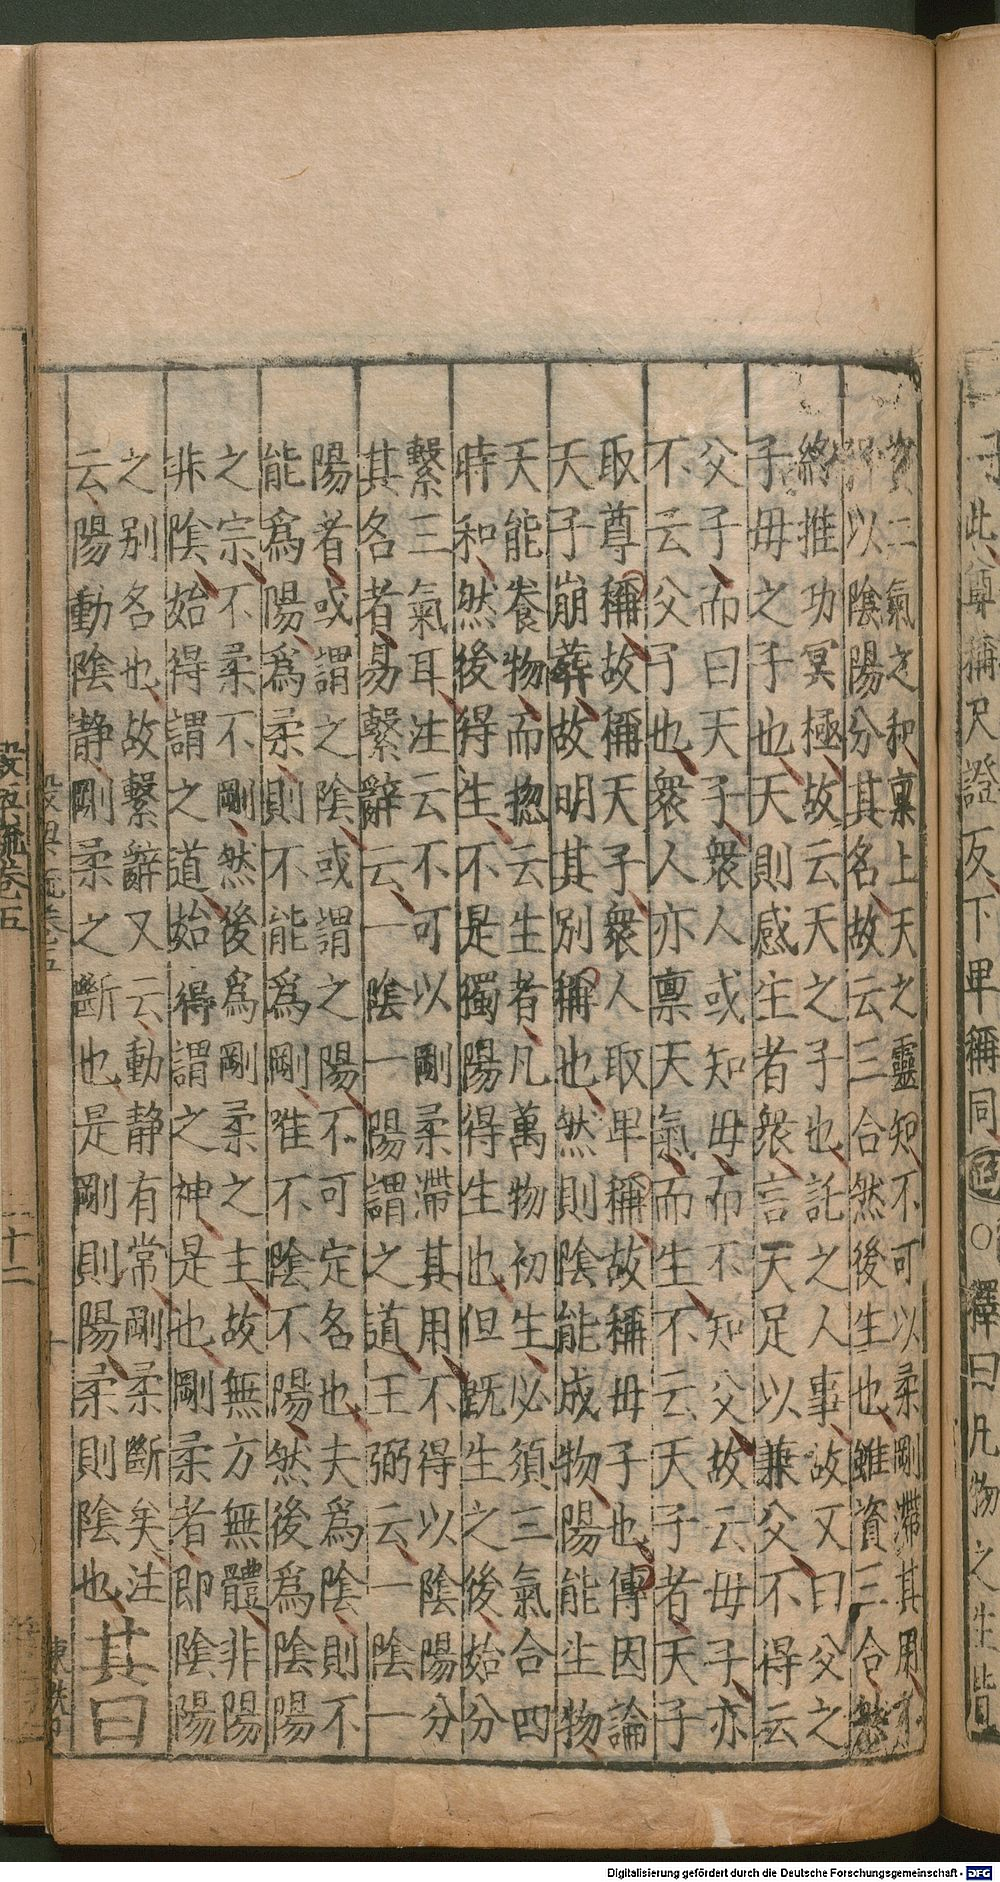 子此尊稱尺證反下卑稱同疏○釋曰凡物之生皆
資二氣之和稟上天之靈知不可以柔剛滯其用不
得以陰陽分其名故云三合然後生也雖資三合然
終推功冥極故云天之子也託之人事故又曰父之
子母之子也天則感生者衆言天足以兼父不得云
父子而曰天子衆人或知母而不知父故云母子亦
不云父子也衆人亦稟天氣而生不云天子者天子
取尊稱故稱天子衆人取卑稱故稱母子也傳因論
天子崩葬故明其別稱也然則陰能成物陽能生物
天能養物而揔云生者凡萬物初生必須三氣合四
時和然後得生不是獨陽得生也但既生之後始分
繫三氣耳注云不可以剛柔滯其用不得以陰陽分
其名者易繫辭云一陰一陽謂之道王弼云一陰一
陽者或謂之陰或謂之陽不可定名也夫爲陰則不
能爲陽爲柔則不能爲剛唯不陰不陽然後爲陰陽
之宗不柔不剛然後爲剛柔之主故無方無體非陽
非陰始得謂之道始得謂之神是也剛柔者即陰陽
之别名也故繫辭又云動静有常剛柔斷矣注
云陽動陰静剛柔之斷也是剛則陽柔則陰也
其曰
疏卷五
十二
Digitalisierung gefördert durch die Deutsche Forschungsgemeinschaft - DFG